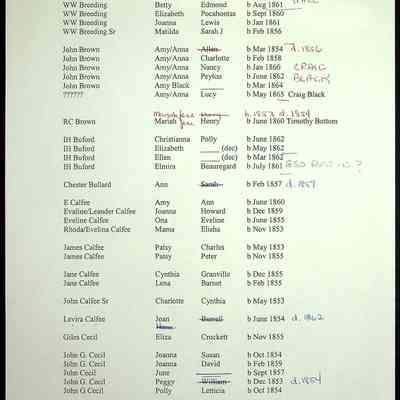 WW Breeding Betty Edmond b Aug 1861
WW Breeding Elizabeth Pocahontas b Sept 1860
WW Breeding Joanna Lewis b Jan 1861
WW Breeding Sr Matilda Sarah J b Feb 1856
John Brown Amy/Anna Allen b Mar 1854 d. 1856
John Brown Amy/Anna Charlotte b Feb 1858
John Brown Amy/Anna Nancy b Jan 1860 CRAIG
John Brown Amy/Anna Peyton b June 1862 BLACK
John Brown Amy Black _____ b Mar 1864
?????? Amy/Anna Lucy b May 1865 Craig Black
b. 1853 d. 1854
RC Brown Mariah Henry b June 1860 Timothy Bottom
IH Buford Christianna Polly b June 1862
IH Buford Elizabeth _____ (dec) b May 1862
IH Buford Ellen _____ (dec) b Mar 1862
IH Buford Elmira Beauregard b July 1861
Chester Bullard Ann Sarah b Feb 1857 d. 1857
E Calfee Amy Ann b June 1860
Evaline/Leander Calfee Joanna Howard b Dec 1859
Eveline Calfee Ona Eveline b June 1855
Rhoda/Evelina Calfee Mama Elisha b Nov 1853
James Calfee Patsy Charles b May 1853
James Calfee Patsy Peter b Nov 1855
Jane Calfee Cynthia Granville b Dec 1855
Jane Calfee Lena Barnet b Feb 1855
John Calfee Sr Charlotte Cynthia b May 1853
Levira Calfee Joan Burrell b June 1854 d. 1862
Giles Cecil Eliza Crockett b Nov 1855
John G. Cecil Joanna Susan b Oct 1854
John G. Cecil Joanna David b Feb 1859
John Cecil June _____ b Sept 1857
John G. Cecil Peggy William b Dec 1853 d. 1854
John G Cecil Polly Letticia b Oct 1854